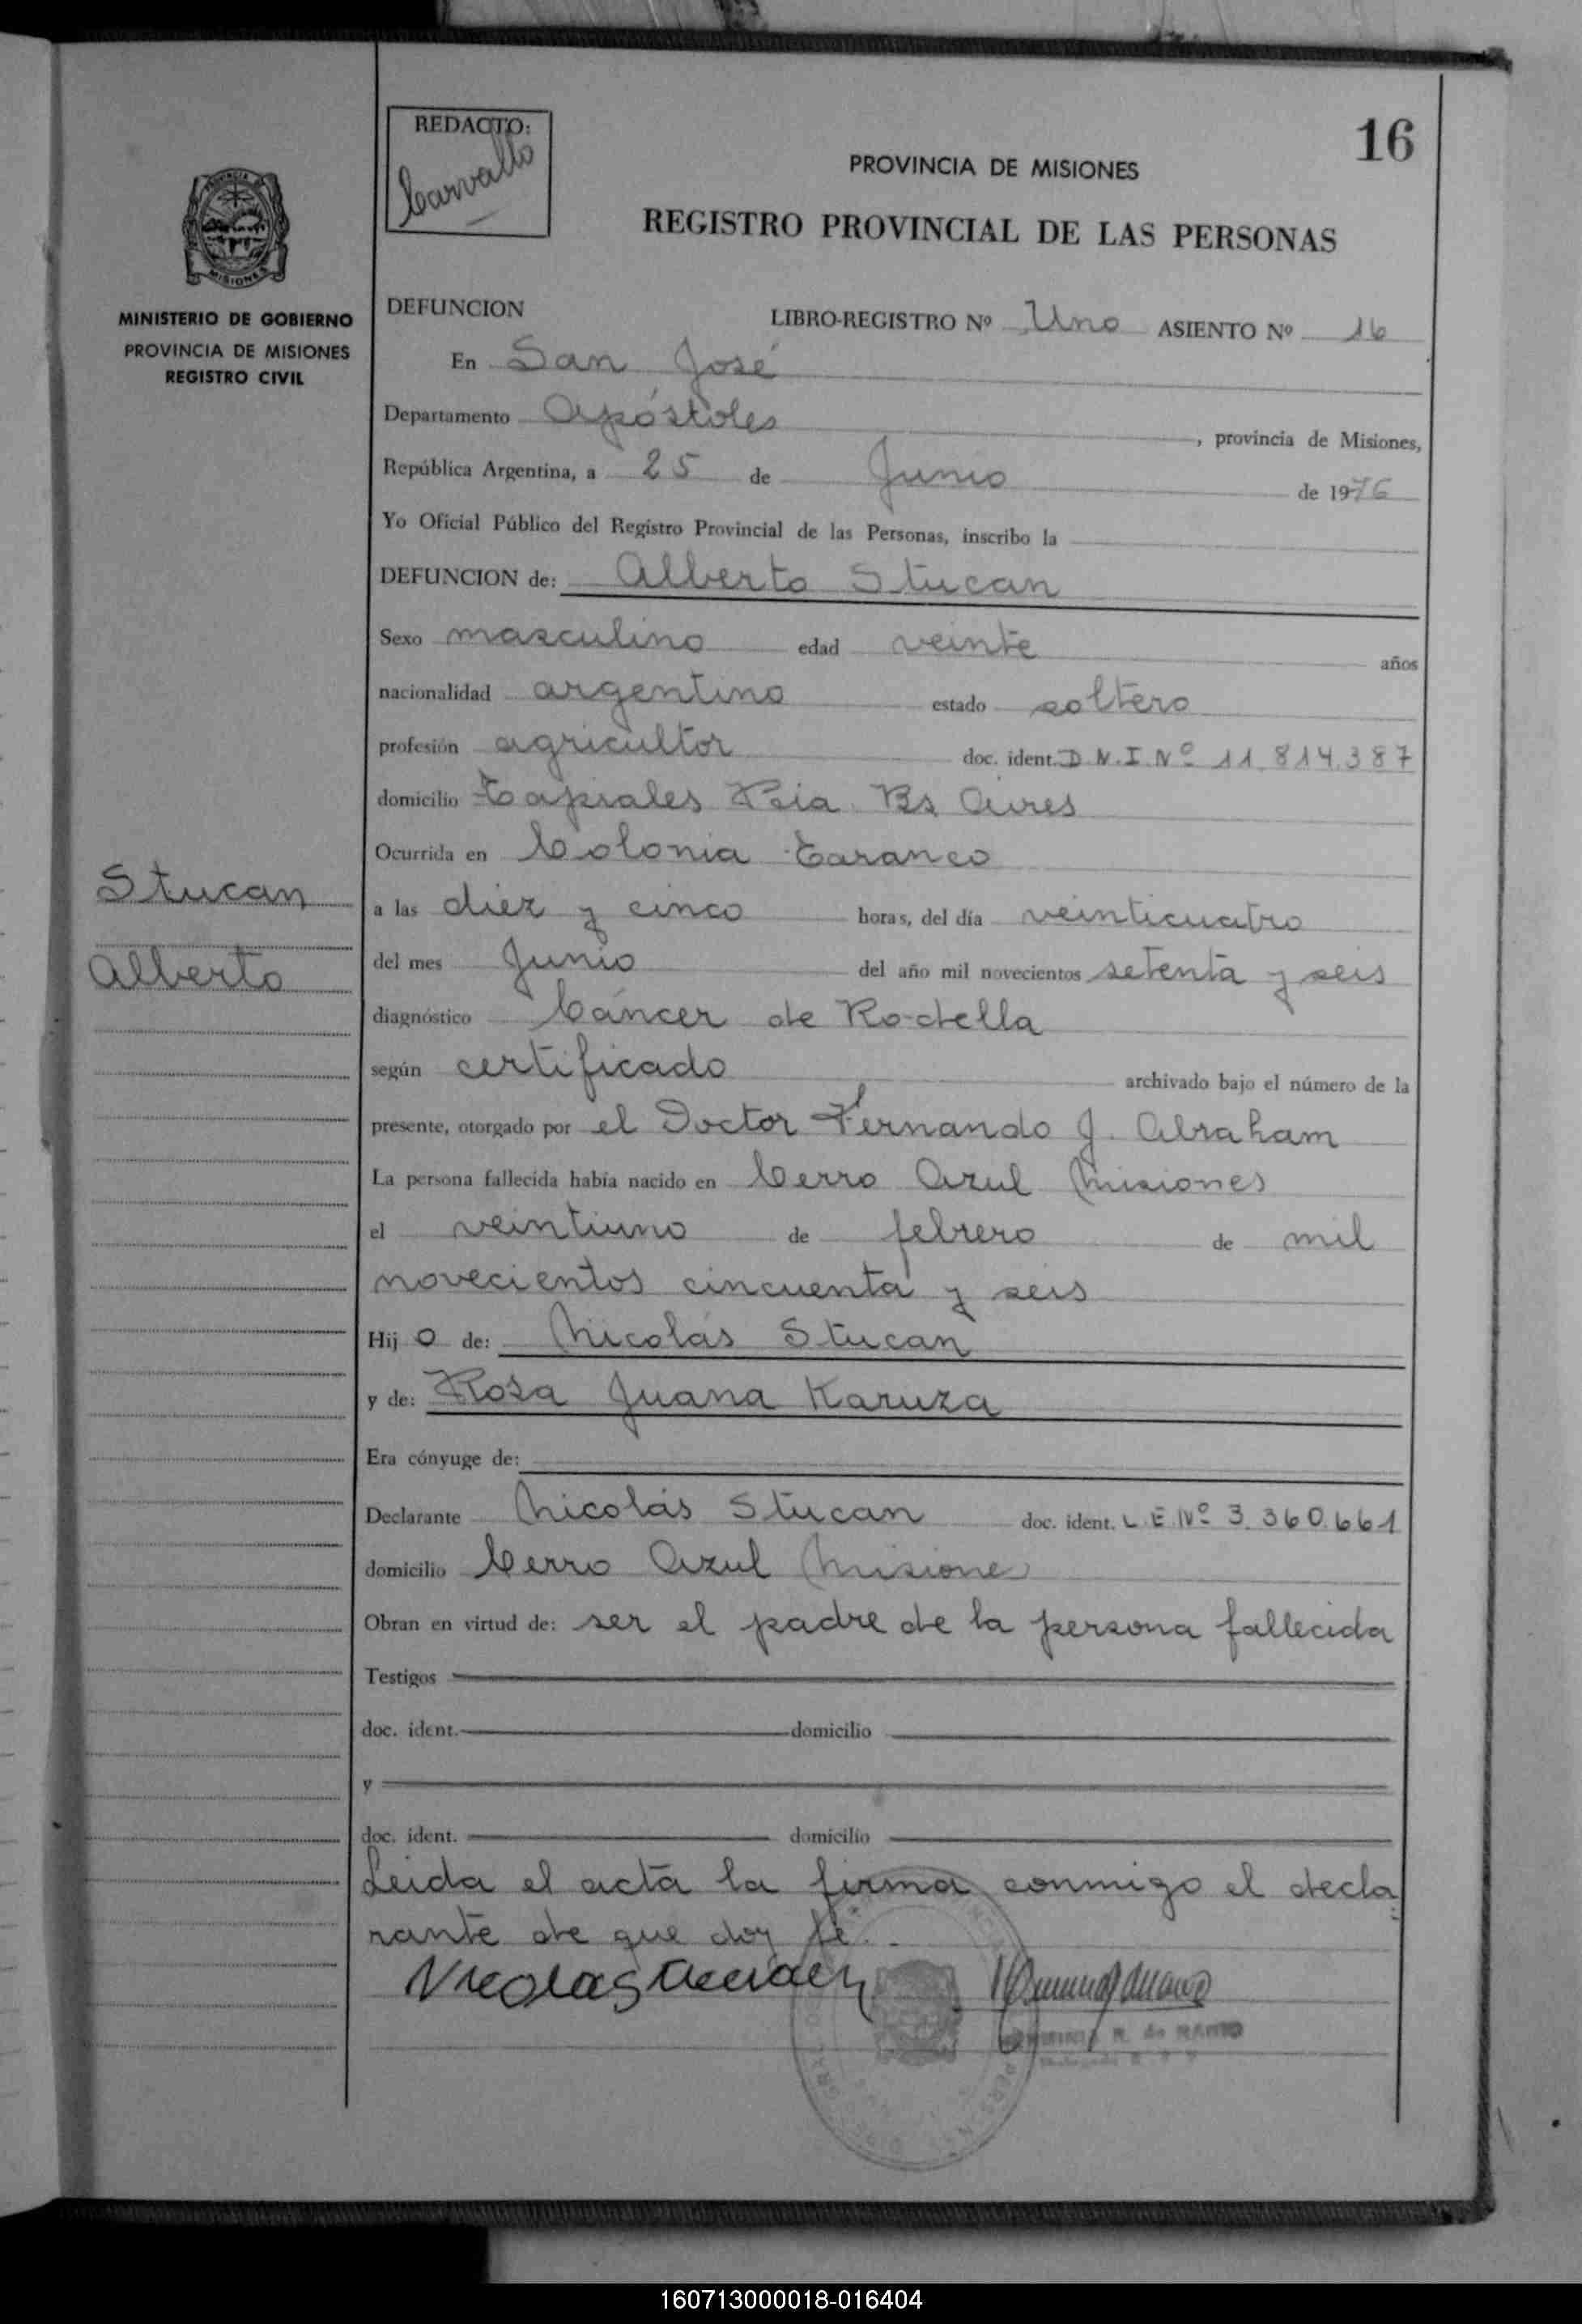 REDACTO:
Carvallo
16
PROVINCIA DE MISIONES
REGISTRO PROVINCIAL DE LAS PERSONAS
PROVINCIA DE
MISIONES
MINISTERIO DE GOBIERNO
PROVINCIA DE MISIONES
REGISTRO CIVIL
DEFUNCION LIBRO-REGISTRO Nº Uno ASIENTO Nº 16
En San José
Departamento Apóstoles, provincia de Misiones,
República Argentina, a 25 de Junio de 1976
Yo Oficial Público del Registro Provincial de las Personas, inscribo la
DEFUNCION de: Alberto Stucan
Sexo masculino edad veinte años
nacionalidad argentino estado soltero
profesión agricultor doc. ident. D.N.I. Nº 11.814.387
domicilio Tapiales Pcia Bs. Aires
Ocurrida en Colonia Taranco
Stucan
Alberto
a las diez y cinco horas, del día veinticuatro
del mes Junio del año mil novecientos setenta y seis
diagnóstico Cáncer de Rodella
según certificado archivado bajo el número de la
presente, otorgado por el Doctor Fernando J. Abraham
La persona fallecida había nacido en Cerro Azul Misiones
el veintiuno de febrero de mil
novecientos cincuenta y seis
Hij o de: Nicolás Stucan
y de: Rosa Juana Karuza
Era cónyuge de:
Declarante Nicolás Stucan doc. ident. L.E. Nº 3.360.661
domicilio Cerro Azul Misiones
Obran en virtud de: ser el padre de la persona fallecida
Testigos
doc. ident. domicilio
y
doc. ident. domicilio
Leida el acta la firma conmigo el decla
rante de que doy fé.
Nicolas
R. de
160713000018-016404